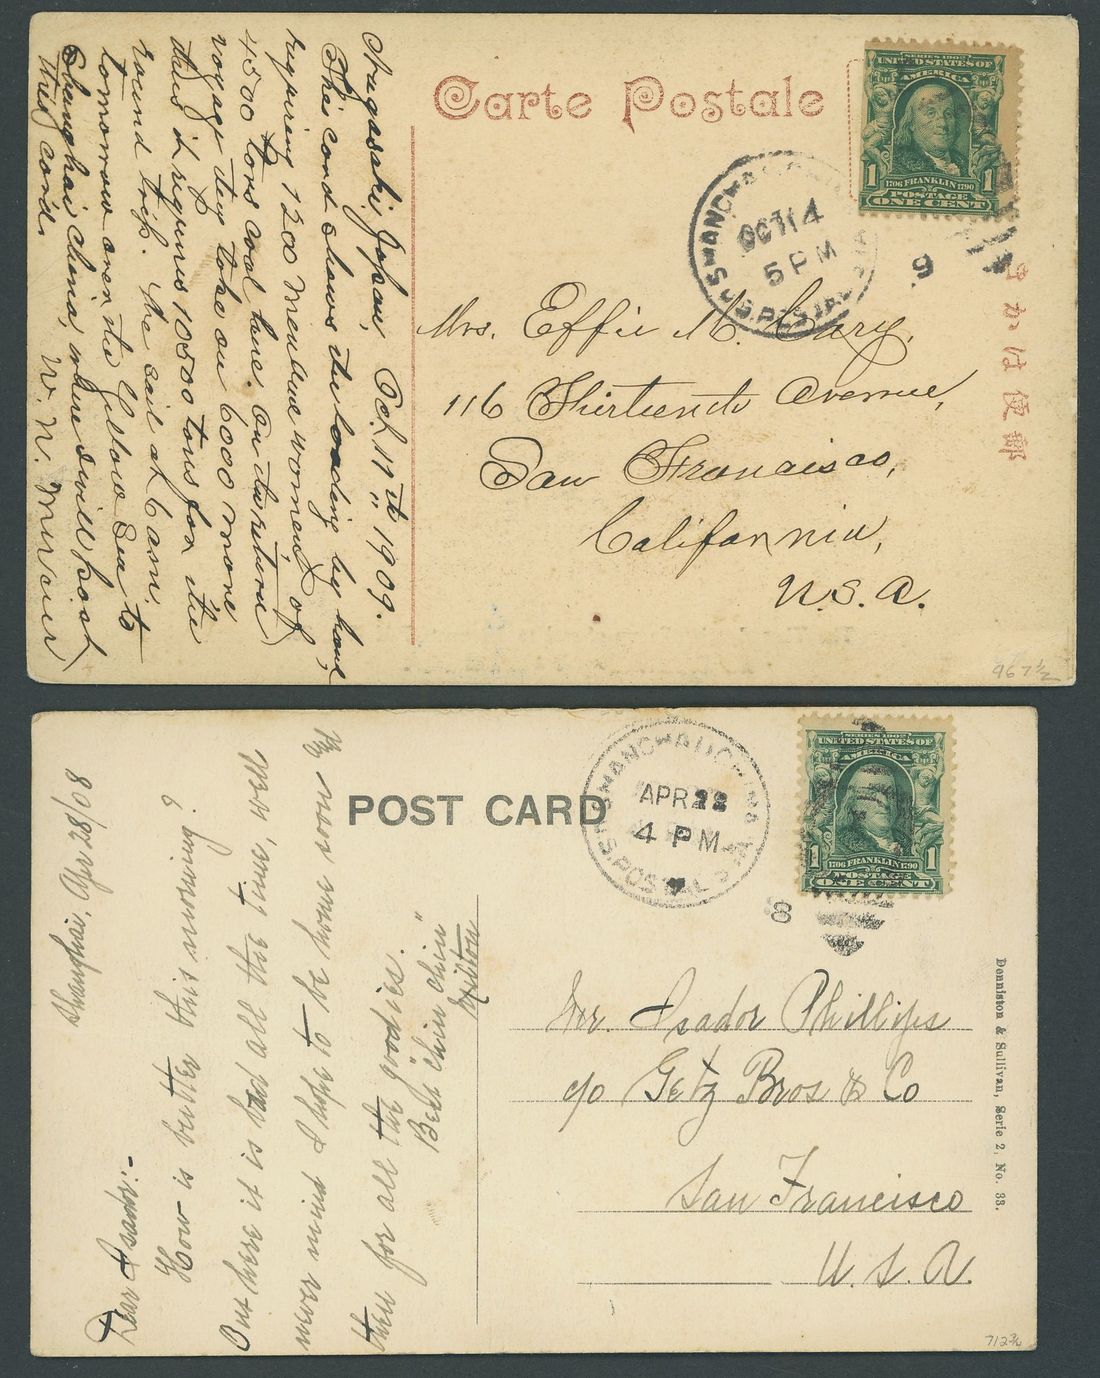 Carte Postale
SERIES 1902
UNITED STATES OF
AMERICA
1706 FRANKLIN 1790
1 POSTAGE 1
ONE CENT
SHANGHAI
OCT 14
5 PM
U.S. POSTAL
9
Nagasaki, Japan, Oct. 11th 1909.
This card shows the loading by hand,
requiring 1200 men and women, of
4500 tons coal here. On the return
voyage they take on 6000 more
thus it requires 10500 tons for the
round trip. We sail at 6 am.
tomorrow over the Yellow Sea to
Shanghai China, where I will post
this card.
W. N.
Mrs. Effie M. Cary,
116 Thirteenth Avenue,
San Francisco,
California,
U.S.A.
きかは便郵
967½
POST CARD
SHANGHAI, CHINA
APR 28
4 PM
U.S. POSTAL
8
SERIES 1902
UNITED STATES OF
AMERICA
1706 FRANKLIN 1790
1 POSTAGE 1
ONE CENT
Shanghai, Apr 28/08
Dear Isador:-
How is butter this morning?
Out here it is bad all the time, well
never mind I hope to be home soon
then for all the goodies.
"Beh chin chin"
Milton
Mr. Isador Phillips
c/o Getz Bros & Co
San Francisco
U. S. A.
Denniston & Sullivan, Serie 2, No. 33.